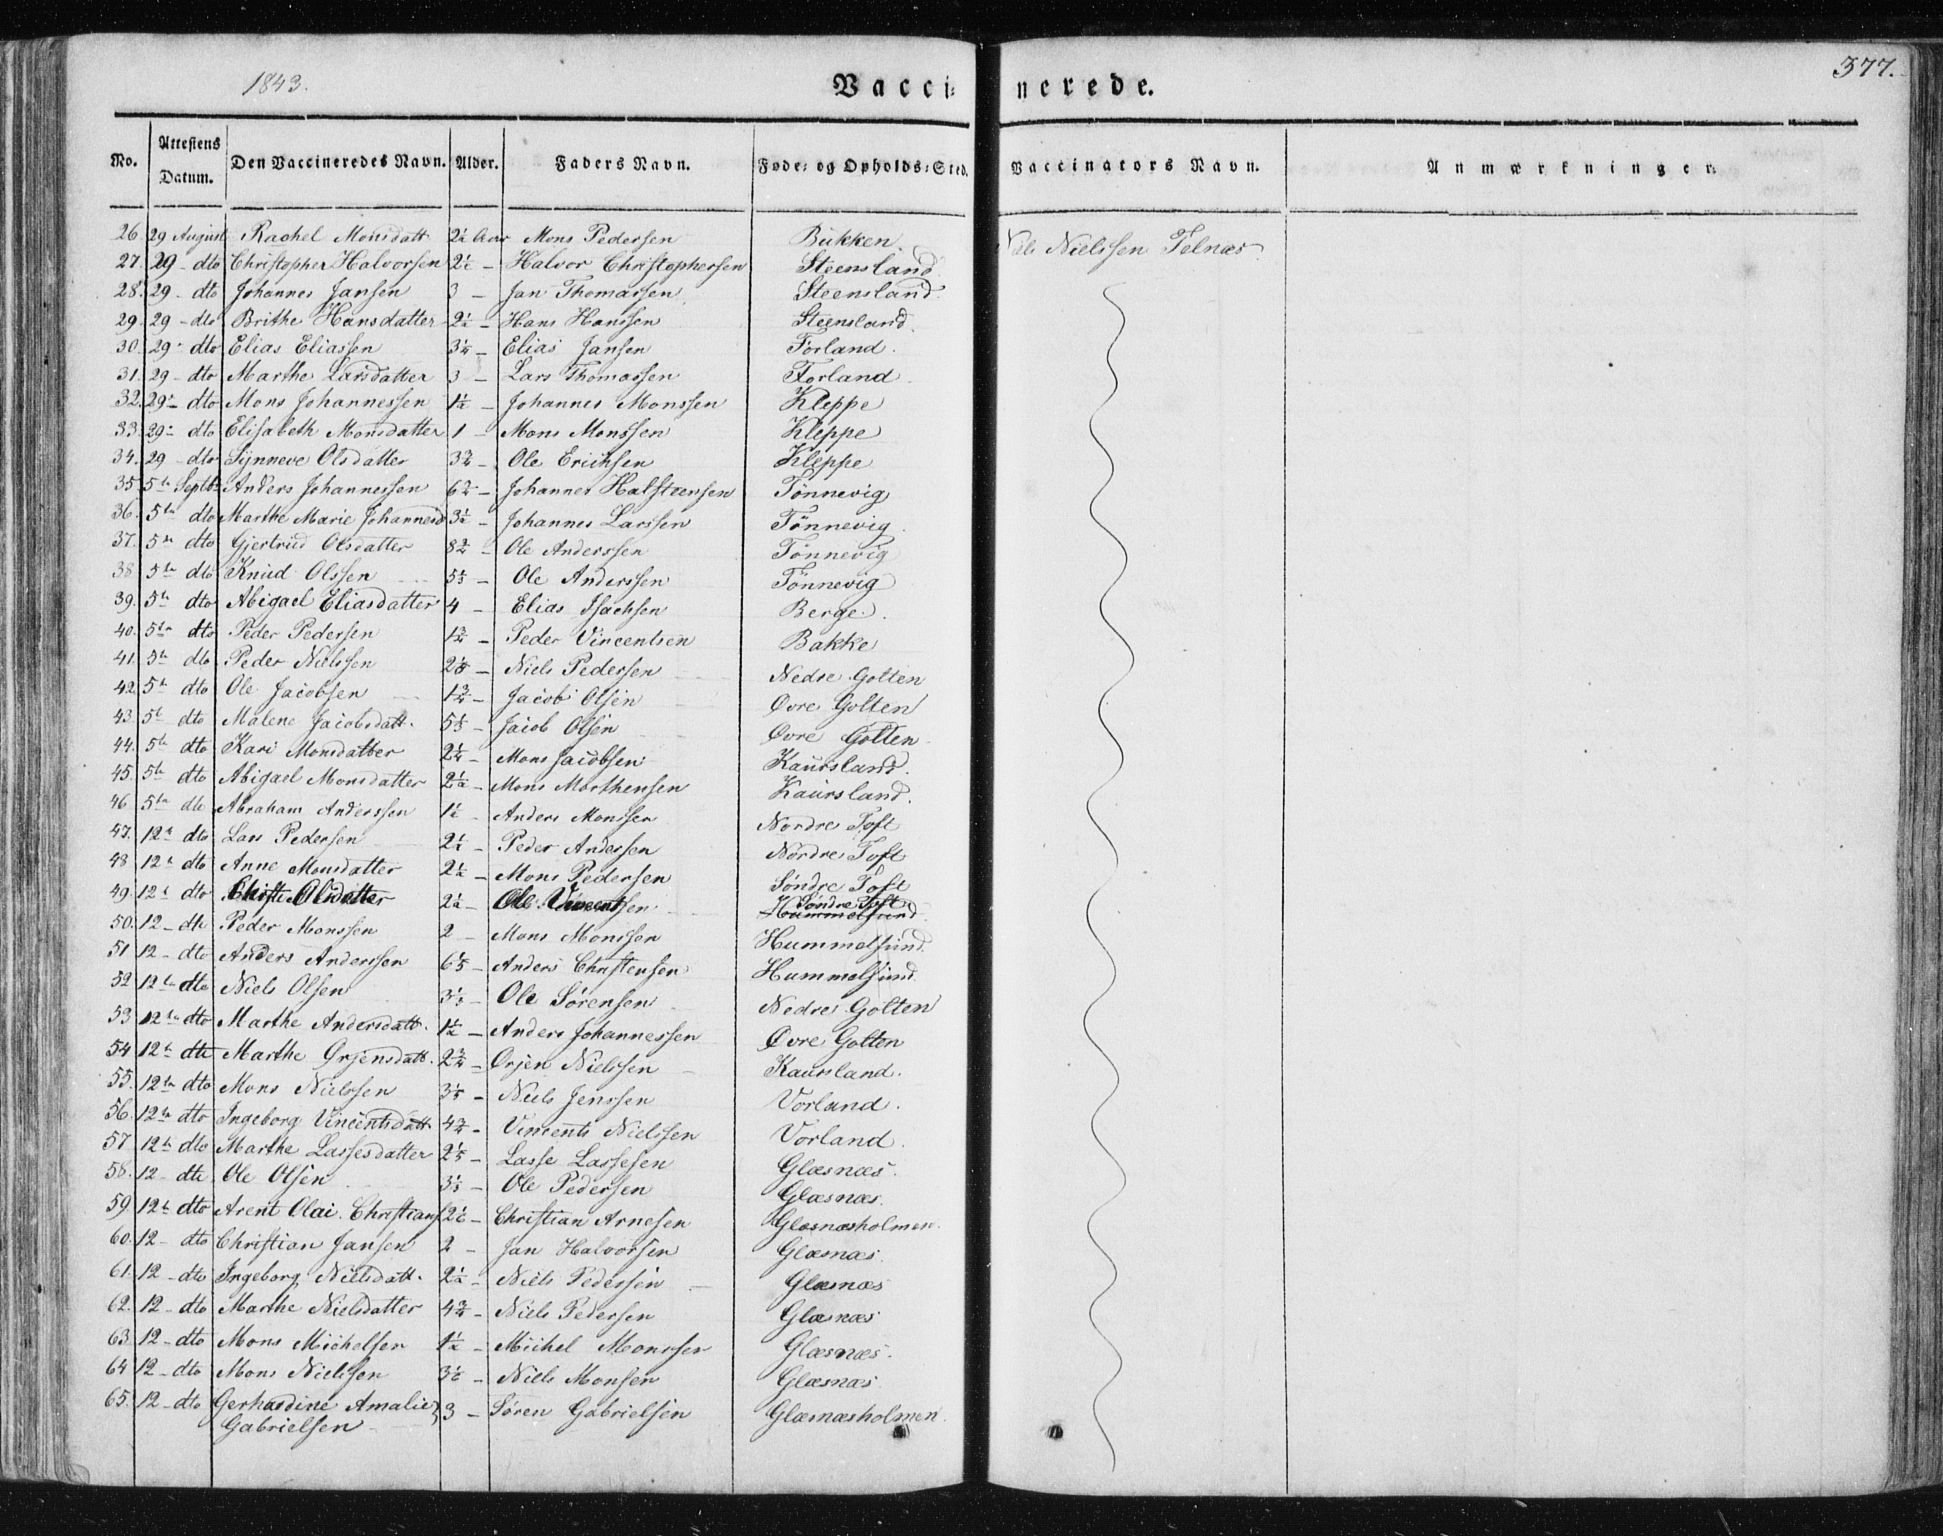 1843.
Vaccinerede.
377.
No. Attestens Datum. Den Vaccineredes Navn. Alder. Faders Navn. Føde- og Opholds-Sted. Vaccinators Navn. Anmærkninger.
26 29 August Rachel Monsdatt 2¼ Mons Pedersen Bukken. Niels Nielssen Telnæs
27. 29 - dto Christopher Halvorsen - Halvor Christophersen Steensland
28. 29 - dto Johannes Jansen 3 - Jan Thomassen Steensland.
29. 29 - dto Brithe Hansdatter 2½ - Hans Hanssen Steensland.
30. 29 - dto Elias Eliassen 3¼ - Elias Jansen Forland.
31. 29 - dto Marthe Larsdatter 3 - Lars Thomassen Forland.
32. 29 - dto Mons Johannessen 1½ - Johannes Monssen Kleppe
33. 29 - dto Elisabeth Monsdatter 1 - Mons Monssen Kleppe
34. 29 - dto Synneve Olsdatter 3¾ - Ole Erichsen Kleppe
35. 5te Septbr Anders Johannessen 6¾ - Johannes Halsteensen Tønnevig
36. 5te dto Marthe Marie Johannesd 3½ - Johannes Larssen Tønnevig.
37. 5te dto Gjertrud Olsdatter 8¾ - Ole Anderssen Tønnevig
38 5te dto Knud Olssen - Ole Anderssen Tønnevig
39. 5te dto Abigael Eliasdatter 4 - Elias Isachsen Berge.
40. 5te dto Peder Pedersen 1¾ - Peder Vincentsen Bakke
41. 5te dto Peder Nielssen - Niels Pedersen Nedre Golten
42. 5te dto Ole Jacobsen 1¾ - Jacob Olsen Øvre Golten
43. 5te dto Malene Jacobsdatt. - Jacob Olsen Øvre Golten
44. 5te dto Kari Monsdatter 2¼ - Mons Jacobsen Kaursland.
45. 5te dto Abigael Monsdatter 2½ - Mons Morthensen Kaursland.
46 5te dto Abraham Anderssen - Anders Monssen Nordre Toft
47. 12te dto Lars Pedersen 2¼ - Peder Andersen Nordre Toft
48 12te dto Anne Monsdatter 2½ - Mons Pedersen Søndre Toft
49. 12te dto Olsdatter 2½ - Ole Vincentsen Søndre Toft Hummelsund
50. 12 - dto Peder Monssen 2 - Mons Monssen Hummelsund.
51 12 - dto Anders Anderssen - Anders Christensen Hummelsund
52 12te dto Niels Olsen 3⅓ - Ole Sørensen Nedre Golten
53 12te dto Marthe Andersdatt. 1½ - Anders Johannessen Øvre Golten
54 12te dto Marthe Ørjensdatt. 2¾ - Ørjen Nielssen Kaursland.
55. 12te dto Mons Nielssen - Niels Jenssen Vorland.
56. 12te dto Ingeborg Vincentsdatt 4¾ - Vincents Nielssen Vorland.
57. 12te dto Marthe Lassesdatter - Lasse Lassesen Glæsnæs.
58. 12 - dto Ole Olsen 3⅓ - Ole Pedersen Glæsnæs.
59. 12te dto Arent Olai Christians - Christian Arnesen Glæsnæsholmen.
60. 12 - dto Christian Jansen 2 - Jan Halvorsen Glæsnæs.
61. 12 - dto Ingeborg Nielsdatt. 2½ - Niels Pedersen Glæsnæs
62. 12 - dto Marthe Nielsdatter 4¾ - Niels Pedersen Glæsnæs
63 12 - dto Mons Michelsen 1½ - Michel Monssen Glæsnæs.
64 12 - dto Mons Nielssen - Niels Monsen Glæsnæs
65. 12 - dto Gerhardine Amalie 3 - Søren Gabrielsen Glæsnæsholmen.
Gabrielsen